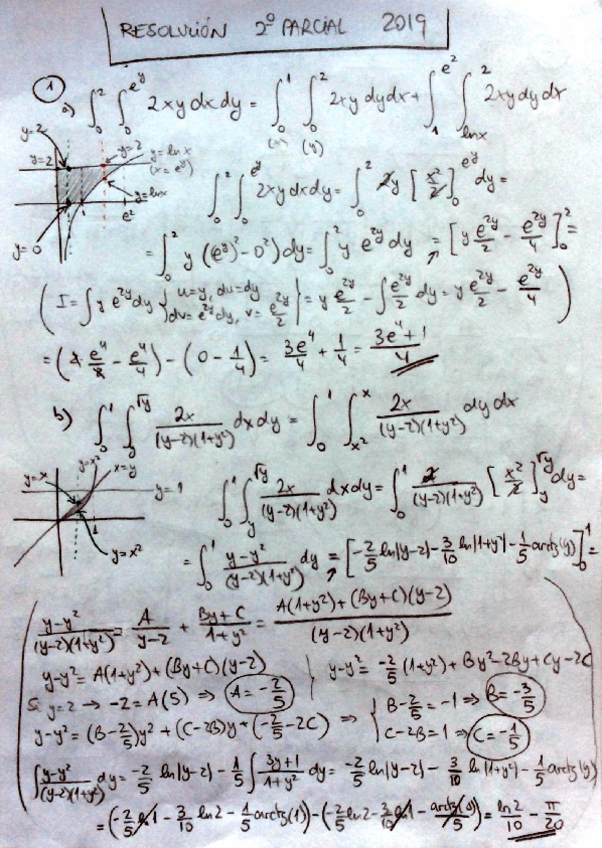 RESOLUCIÓN 2º PARCIAL 2019
①
a) ∫₀² ∫₀^{e^y} 2xy dx dy = ∫₀¹ ∫₀² 2xy dy dx + ∫₁^{e²} ∫_{ln x}² 2xy dy dx
(x) (y)
y=2
y=2
y=2
y=ln x
(x=e^y)
y=ln x
1
e²
y=0
∫₀² ∫₀^{e^y} 2xy dx dy = ∫₀² 2y [x²/2]₀^{e^y} dy =
= ∫₀² y ((e^y)² - 0²) dy = ∫₀² y e^{2y} dy = [y e^{2y}/2 - e^{2y}/4]₀² =
(I = ∫ y e^{2y} dy } u=y, du=dy dv=e^{2y}dy, v=e^{2y}/2 | = y e^{2y}/2 - ∫ e^{2y}/2 dy = y e^{2y}/2 - e^{2y}/4)
= (2 e⁴/2 - e⁴/4) - (0 - 1/4) = 3e⁴/4 + 1/4 = (3e⁴+1)/4
b) ∫₀¹ ∫_y^{√y} 2x/((y-2)(1+y²)) dx dy = ∫₀¹ ∫_{x²}^x 2x/((y-2)(1+y²)) dy dx
y=x
y=x²
x=y
y=1
1
y=x²
∫₀¹ ∫_y^{√y} 2x/((y-2)(1+y²)) dx dy = ∫₀¹ 2/((y-2)(1+y²)) [x²/2]_y^{√y} dy =
= ∫₀¹ (y-y²)/((y-2)(1+y²)) dy = [-2/5 ln|y-2| - 3/10 ln|1+y²| - 1/5 arctg(y)]₀¹ =
(y-y²)/((y-2)(1+y²)) = A/(y-2) + (By+C)/(1+y²) = (A(1+y²)+(By+C)(y-2))/((y-2)(1+y²))
y-y² = A(1+y²)+(By+C)(y-2) } y-y² = -2/5 (1+y²) + By²-2By+Cy-2C
Si y=2 → -2=A(5) ⇒ A=-2/5
y-y² = (B-2/5)y² + (C-2B)y + (-2/5-2C) ⇒ { B-2/5=-1 ⇒ B=-3/5
C-2B=1 ⇒ C=-1/5
∫ (y-y²)/((y-2)(1+y²)) dy = -2/5 ln|y-2| - 1/5 ∫ (3y+1)/(1+y²) dy = -2/5 ln|y-2| - 3/10 ln|1+y²| - 1/5 arctg(y)
= (-2/5 ln 1 - 3/10 ln2 - 1/5 arctg(1)) - (-2/5 ln2 - 3/10 ln 1 - arctg(0)/5) = ln2/10 - π/20